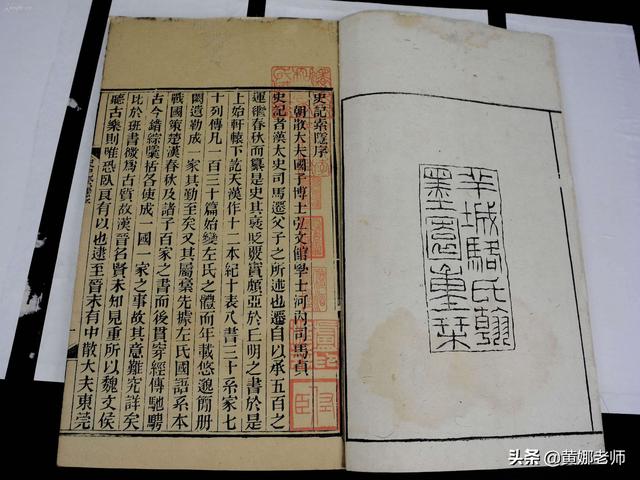 羊城駱氏翰
墨園重栞
史記索隱序
朝散大夫國子博士弘文館學士河內司馬貞
史記者漢太史司馬遷父子之所述也遷自以承五百之
運繼春秋而纂是史其褒貶覈實頗亞於丘明之書於是
上始軒轅下訖天漢作十二本紀十表八書三十系家七
十列傳凡一百三十篇始變左氏之體而年載悠邈簡冊
闕遺勒成一家其勤至矣又其屬稾先據左氏國語系本
戰國策楚漢春秋及諸子百家之書而後貫穿經傳馳騁
古今錯綜隱括各使成一國一家之事故其意難究詳矣
比於班書微爲古質故漢晉名賢未知見重所以魏文侯
聽古樂則唯恐臥良有以也逮至晉末有中散大夫東莞
头条 @黄娜老师